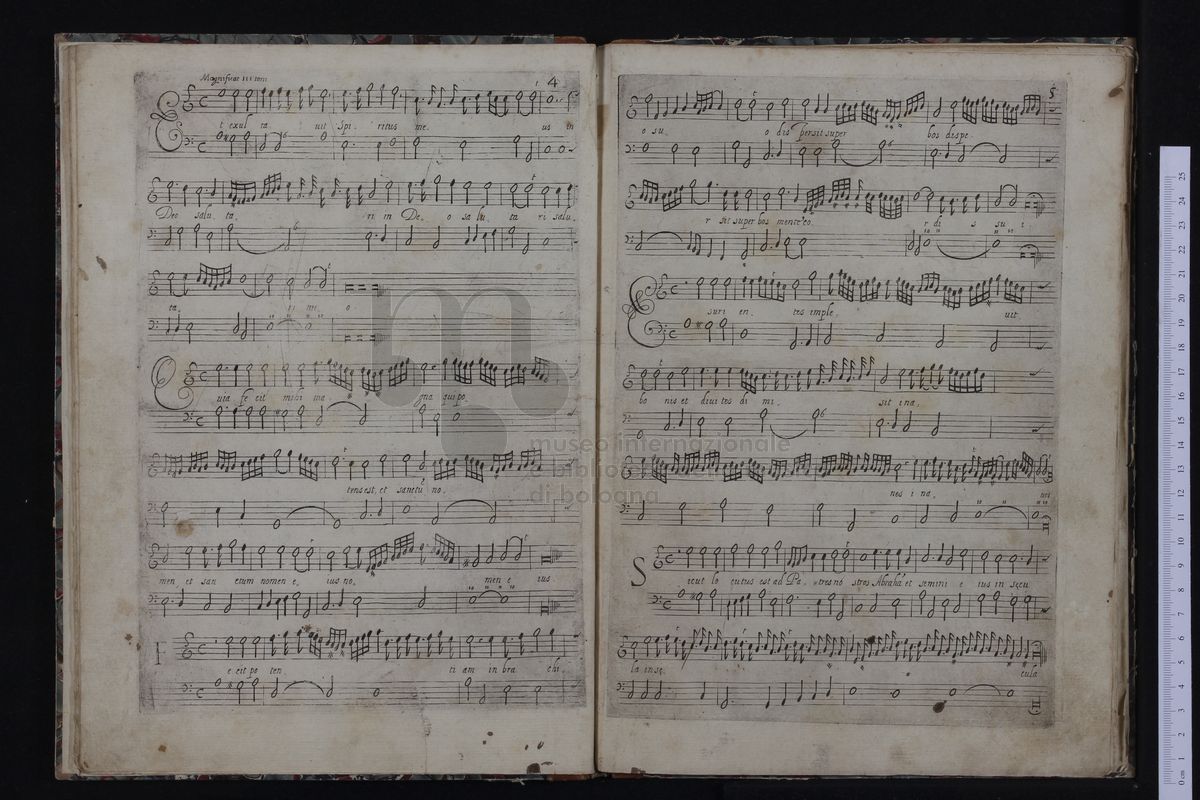 Magnificat iii toni
4
t exul ta uit Spi ritus me us in
Deo salu ta ri in De o sa lu ta ri salu
ta ri me o
uia fe cit mihi ma gna qui po
tens est, et sanctū no
men, et san ctum nomen e ius no men e ius
F
e cit po ten ti am in bra chi
5
o su o dis persit super bos dispe
r sit super bos mente co r di s su i
suri en tes imple uit
bo nis et diui tes di mi sit ina
nes i na nes
S
icut lo cutus est ad Pa tres no stros Abrahā et semini e ius in secu
la in se culá
museo internazionale
e biblioteca
di bologna
0 cm 1 2 3 4 5 6 7 8 9 10 11 12 13 14 15 16 17 18 19 20 21 22 23 24 25